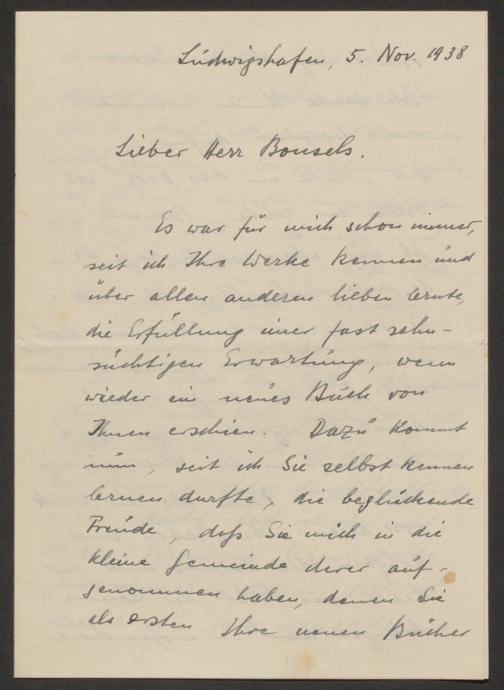 Ludwigshafen, 5. Nov. 1938
Lieber Herr Bonsels.
Es war für mich schon immer,
seit ich Ihre Werke kennen und
über allen anderen lieben lernte,
die Erfüllung einer fast sehn-
süchtigen Erwartung, wenn
wieder ein neues Buch von
Ihnen erschien. Dazu kommt
nun, seit ich Sie selbst kennen
lernen durfte, die beglückende
Freude, daß Sie mich in die
kleine Gemeinde derer auf-
genommen haben, denen Sie
als ersten Ihre neuen Bücher